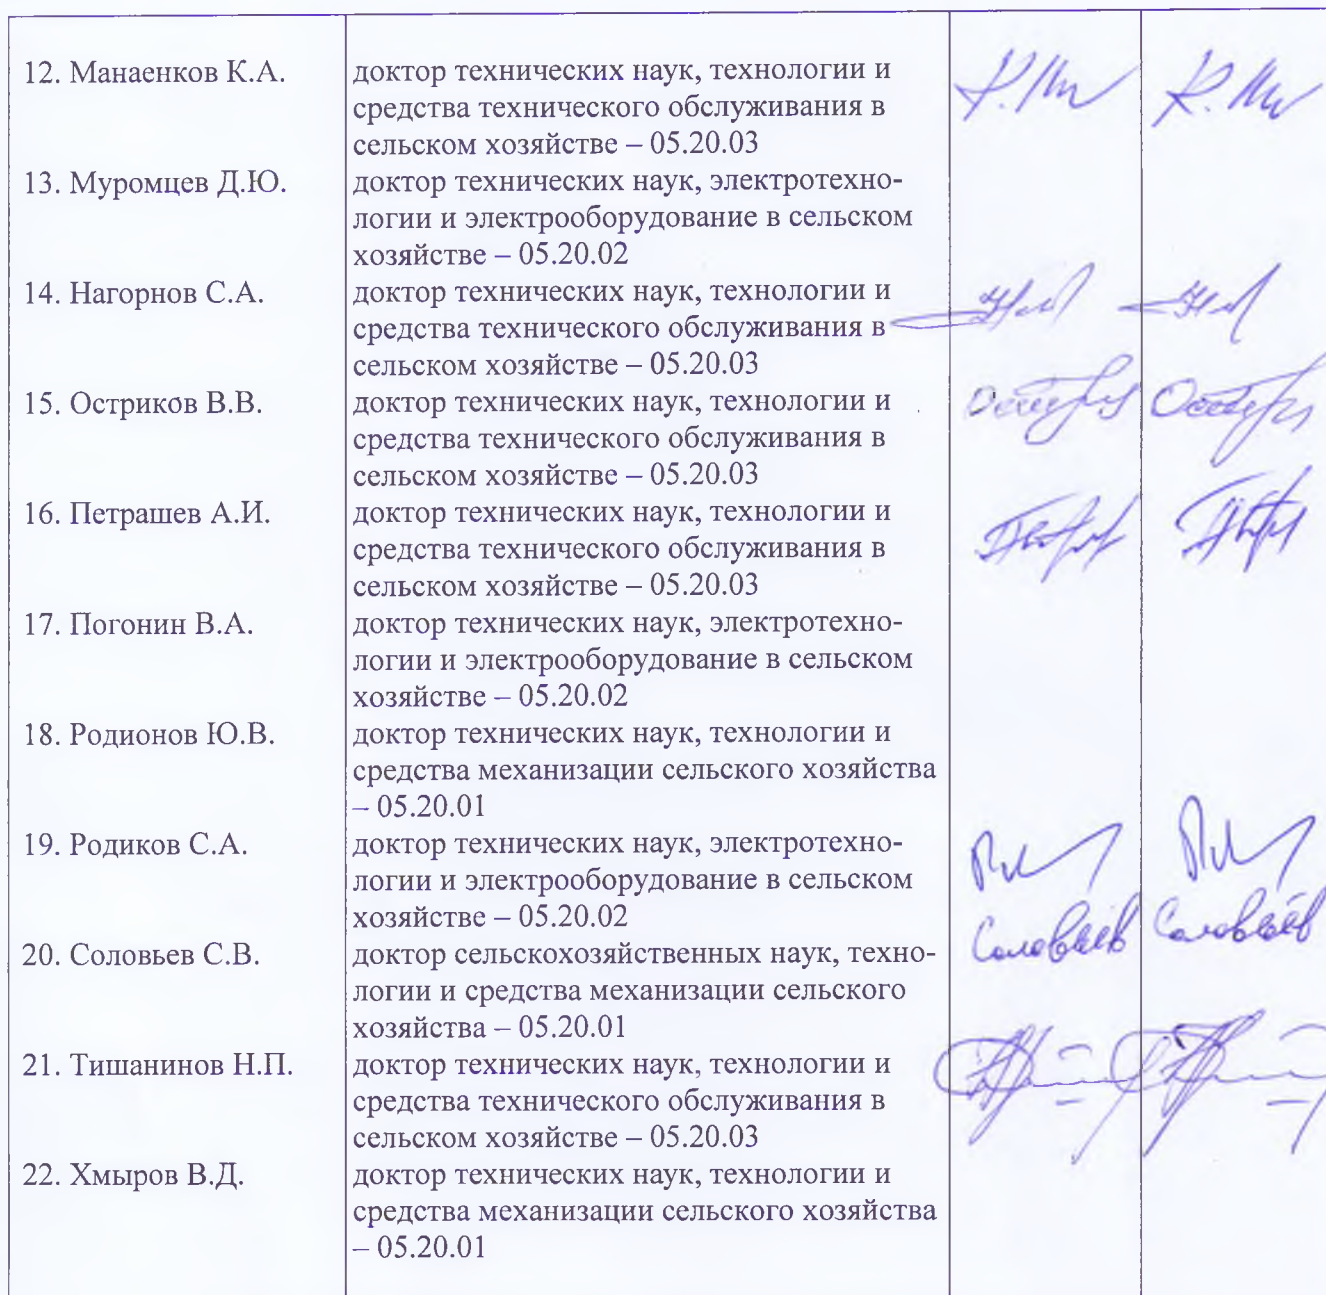 12. Манаенков К.А.
доктор технических наук, технологии и
средства технического обслуживания в
сельском хозяйстве – 05.20.03
13. Муромцев Д.Ю.
доктор технических наук, электротехно-
логии и электрооборудование в сельском
хозяйстве – 05.20.02
14. Нагорнов С.А.
доктор технических наук, технологии и
средства технического обслуживания в
сельском хозяйстве – 05.20.03
15. Остриков В.В.
доктор технических наук, технологии и
средства технического обслуживания в
сельском хозяйстве – 05.20.03
16. Петрашев А.И.
доктор технических наук, технологии и
средства технического обслуживания в
сельском хозяйстве – 05.20.03
17. Погонин В.А.
доктор технических наук, электротехно-
логии и электрооборудование в сельском
хозяйстве – 05.20.02
18. Родионов Ю.В.
доктор технических наук, технологии и
средства механизации сельского хозяйства
– 05.20.01
19. Родиков С.А.
доктор технических наук, электротехно-
логии и электрооборудование в сельском
хозяйстве – 05.20.02
20. Соловьев С.В.
доктор сельскохозяйственных наук, техно-
логии и средства механизации сельского
хозяйства – 05.20.01
Соловьёв Соловьёв
21. Тишанинов Н.П.
доктор технических наук, технологии и
средства технического обслуживания в
сельском хозяйстве – 05.20.03
22. Хмыров В.Д.
доктор технических наук, технологии и
средства механизации сельского хозяйства
– 05.20.01